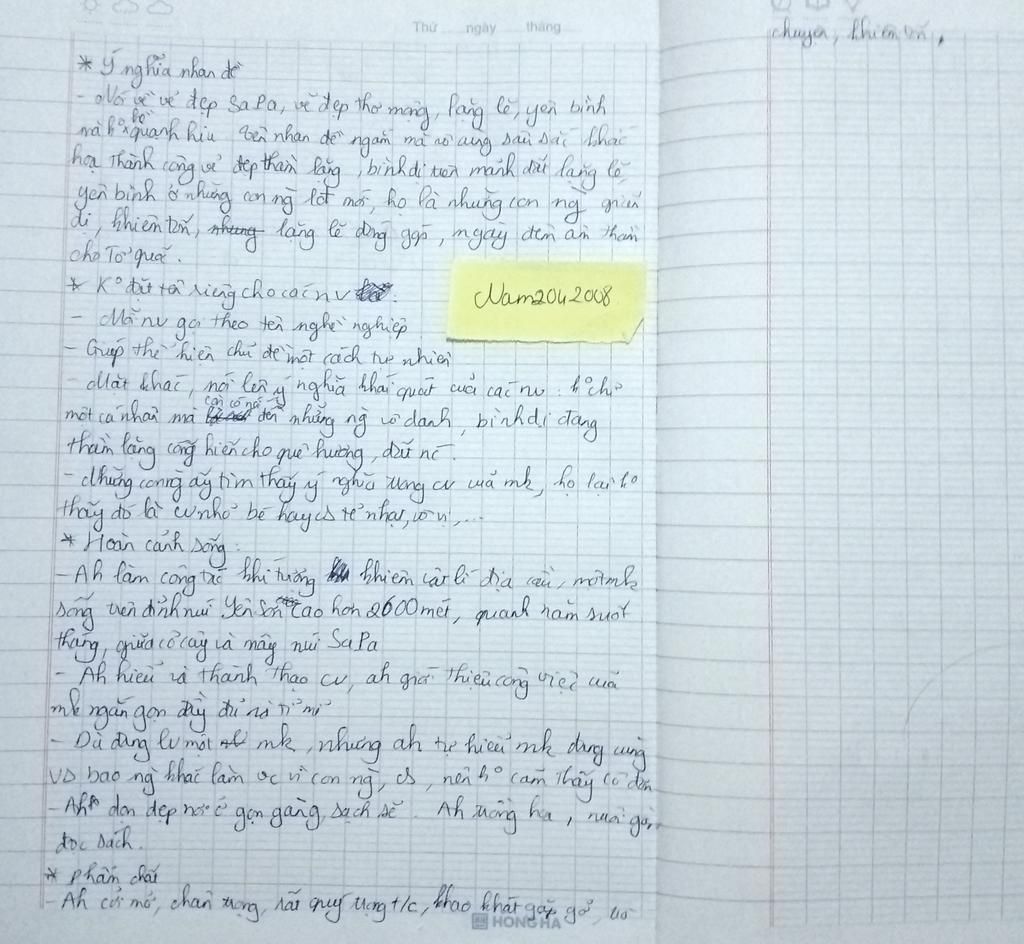 Thứ ngày tháng
* Ý nghĩa nhan đề
- Nói về vẻ đẹp SaPa, vẻ đẹp thơ mộng, lặng lẽ, yên bình
mà ko hề quạnh hiu. Tên nhan đề ngắn mà vô cùng sâu sắc khắc
họa thành công vẻ đẹp thầm lặng, bình dị trên mảnh đất lặng lẽ
yên bình ở những con ng lớt mới, họ là những con ng giản
dị, khiêm tốn, lặng lẽ đóng góp, ngày đêm âm thầm
cho Tổ quố.
* Ko đặt tên riêng cho các nv
Nam2042008
- Mỗi nv gọi theo tên nghề nghiệp
- Giúp thể hiện chủ đề một cách tự nhiên
- Mặt khác, nói lên ý nghĩa khái quát của các nv : ko chỉ
một cá nhân mà còn có nói đến những ng vô danh, bình dị đang
thầm lặng cống hiến cho quê hương, đất nc.
- Những con ng ấy tìm thấy ý nghĩa trong cv của mk, họ lại ko
thấy đó là cv nhỏ bé hay cs tẻ nhạt, vô vị,...
* Hoàn cảnh sống:
- Ah làm công tác khí tượng khiêm vật lí địa cầu, một mk
sống trên đỉnh núi Yên Sơn cao hơn 2600 mét, quanh năm suốt
tháng, giữa cỏ cây và mây núi SaPa
- Ah hiểu và thành thạo cv, ah giới thiệu công việc của
mk ngắn gọn đầy đủ và tỉ mỉ
- Dù đang lv một mk, nhưng ah tự hiểu mk đang cùng
vs bao ng khác làm vc vì con ng, cs, nên ko cảm thấy cô đơn
- Ah dọn dẹp nơi ở gọn gàng, sạch sẽ. Ah trồng hoa, nuôi gà,
đọc sách.
* Phẩm chất
- Ah cởi mở, chân trọng, rất quý trọng t/c, khao khát gặp gỡ, trò
HONG HA
chuyện, khiêm tốn.